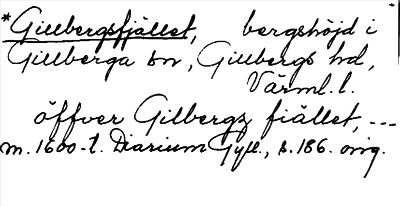 *Gillbergsfjället, bergshöjd i
Gillberga sn, Gillbergs hd,
Värml. l.
öffver Gilbergz fiället, ---
m. 1600-t. Diarium Gyll., s. 186. orig.